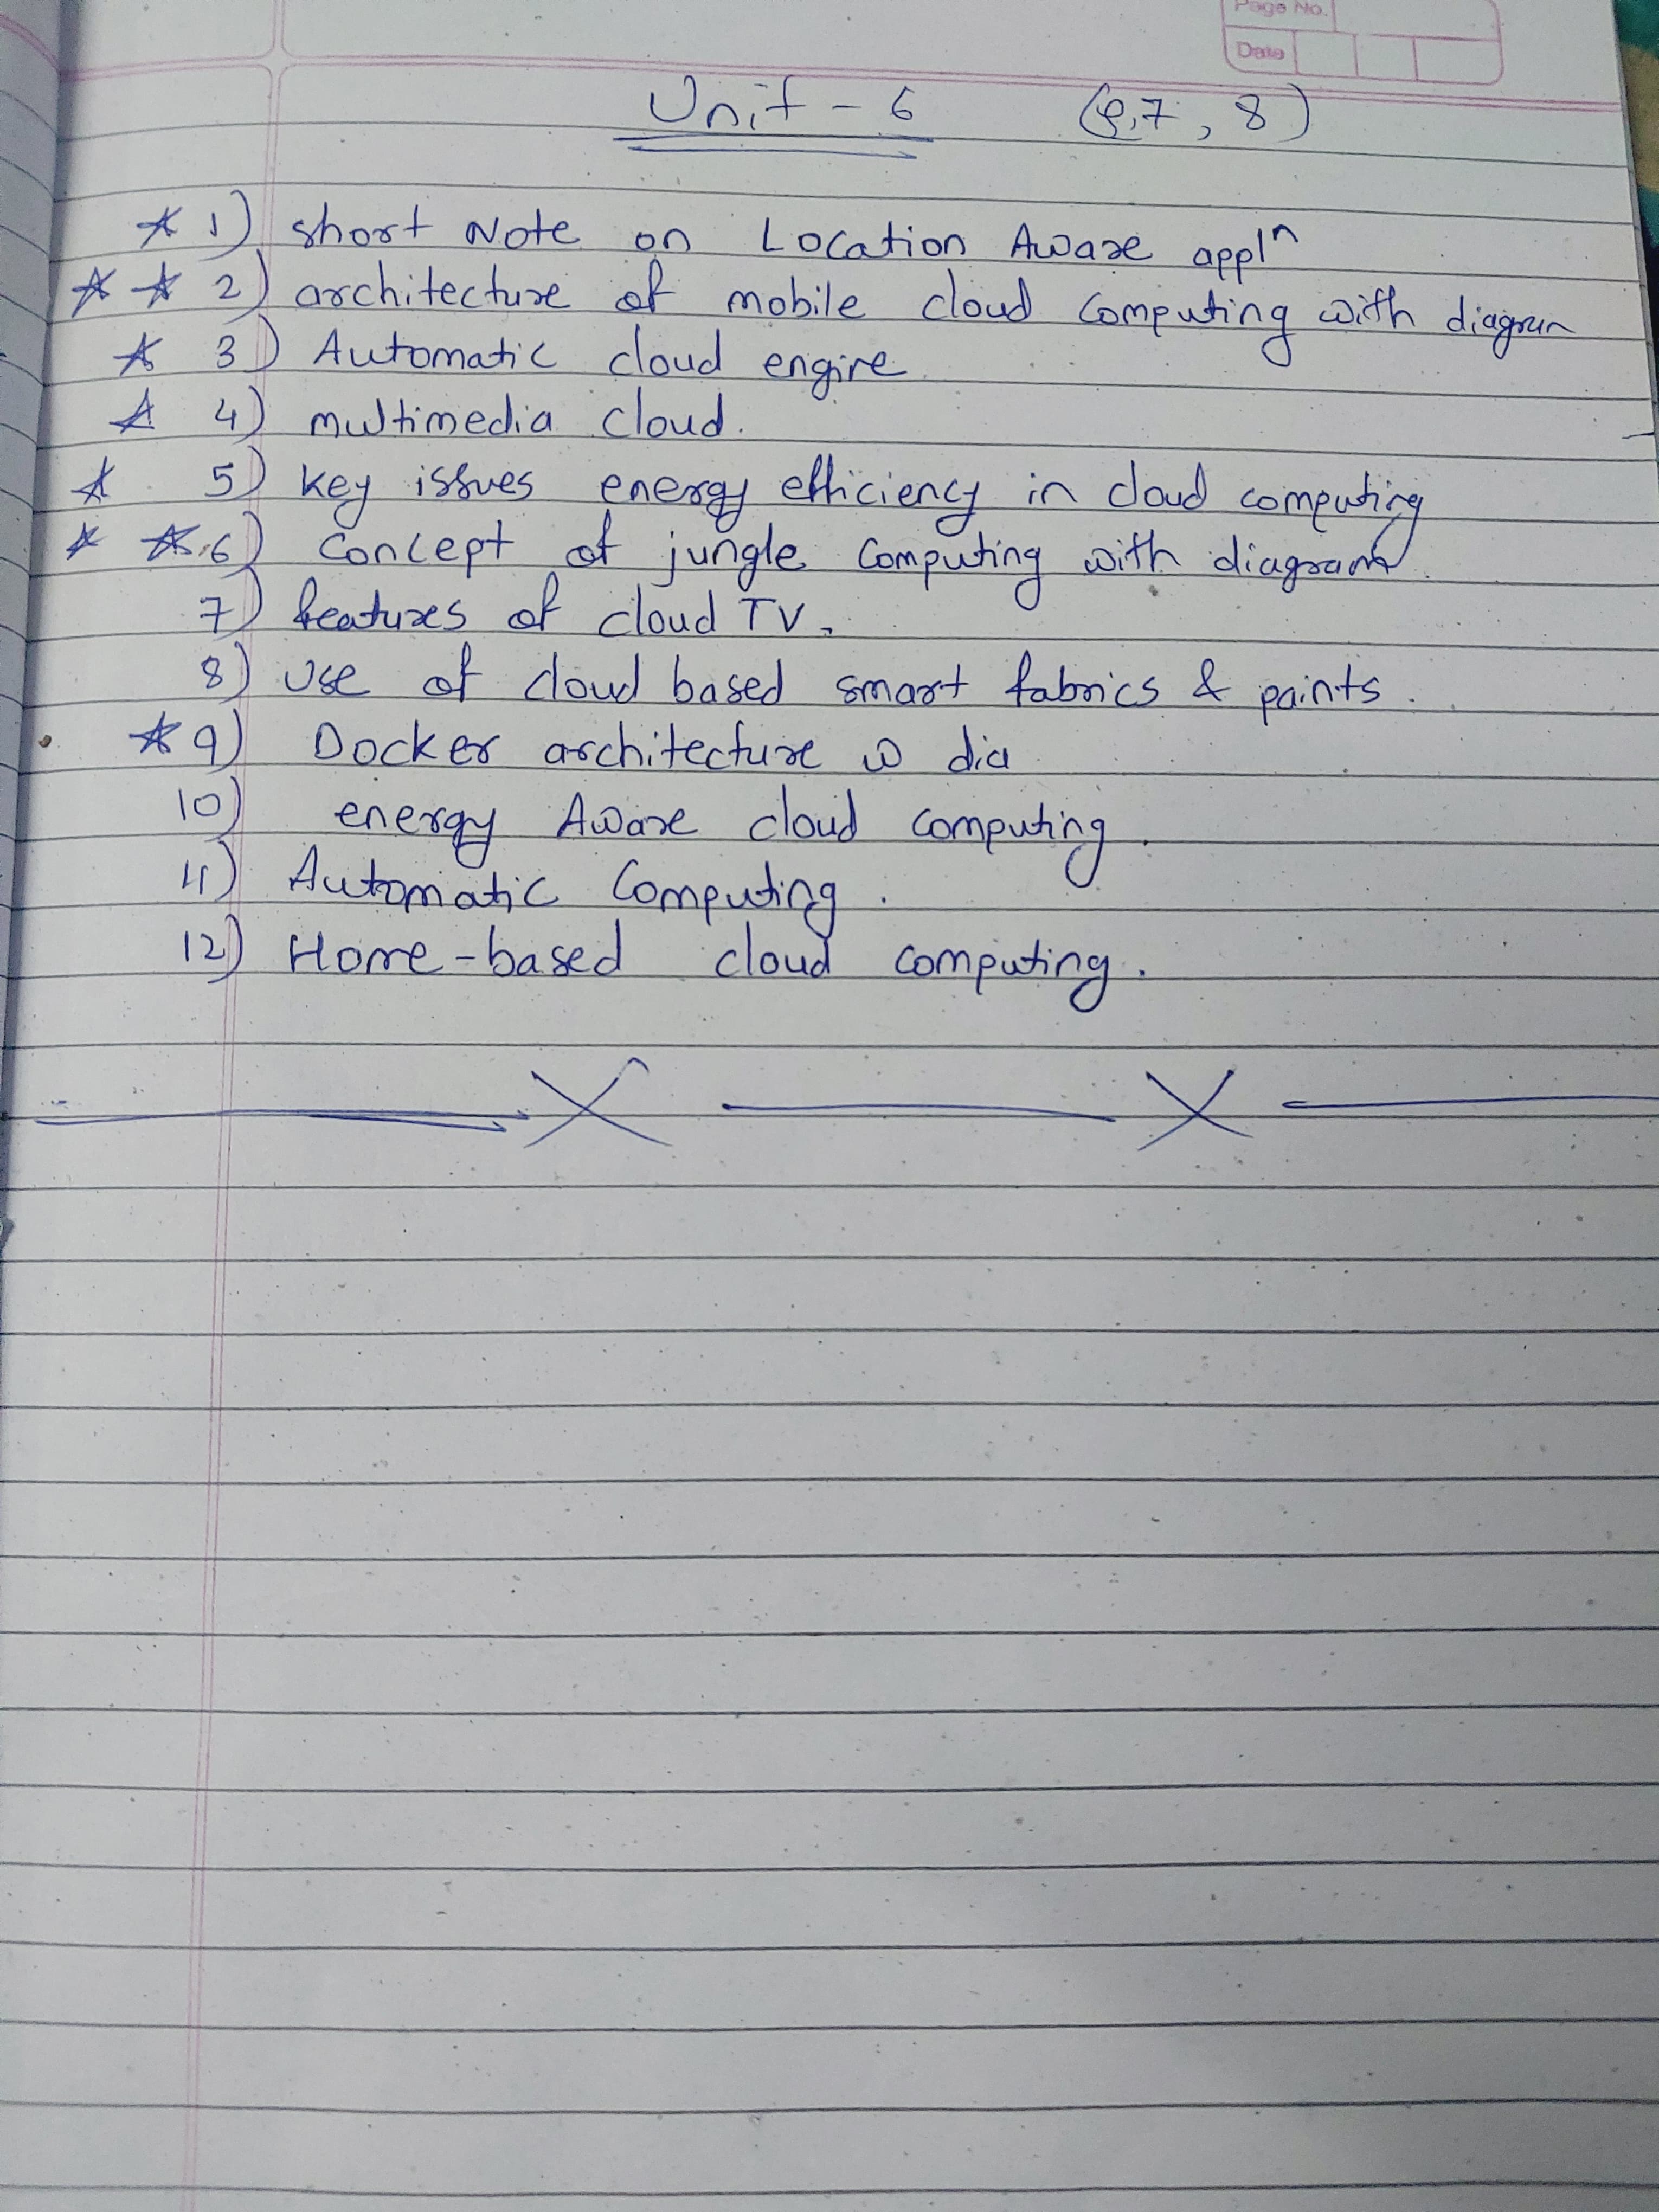 Page No.
Date
Unit - 6 (Q.7, 8)
★ 1) short Note on Location Aware applⁿ
★ ★ 2) architecture of mobile cloud computing with diagram
★ 3) Automatic cloud engine
★ 4) multimedia cloud.
★ 5) key issues energy efficiency in cloud computing
★ ★ 6) concept of jungle computing with diagram.
7) features of cloud TV.
8) use of cloud based smart fabrics & paints.
★ 9) Docker architecture w dia
10) energy Aware cloud computing.
11) Automatic computing.
12) Home-based cloud computing.
X X